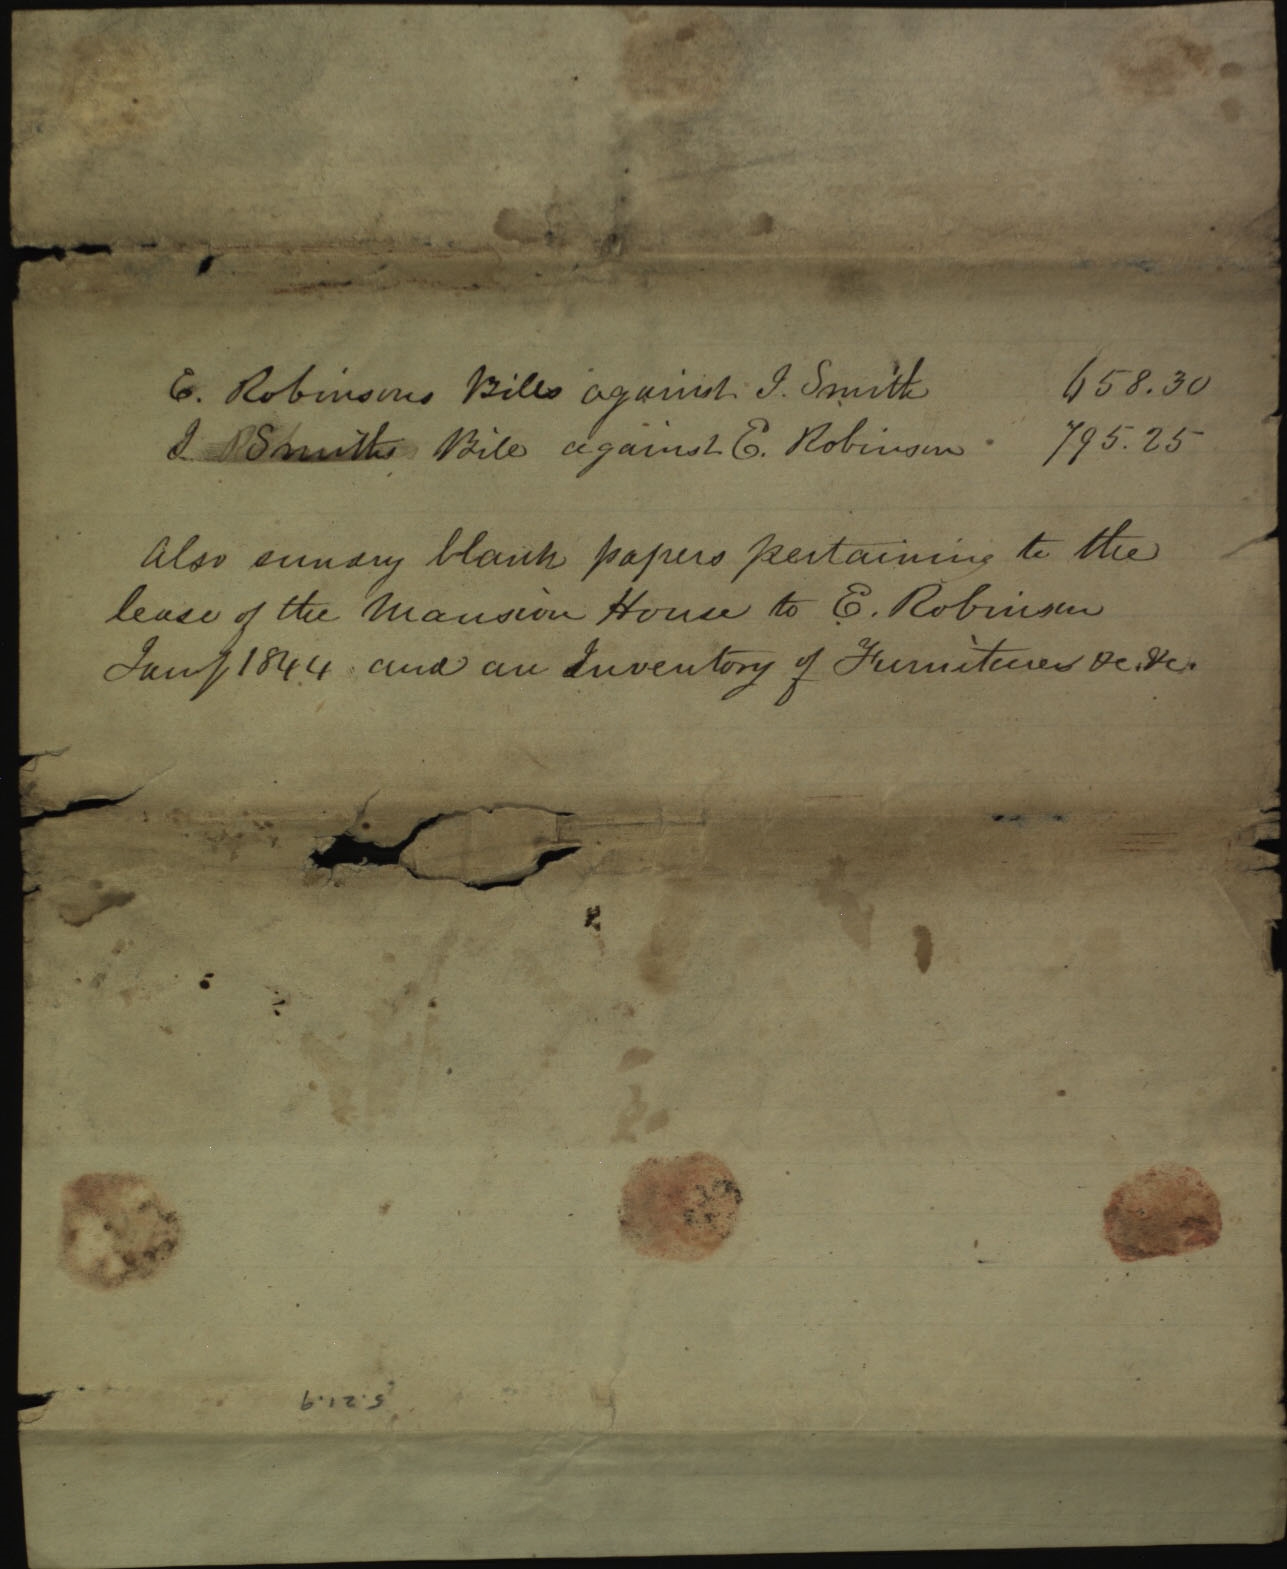 E. Robinsons Bills against J. Smith 658.30
J Smiths Bill against E. Robinson 795.25
Also sundry blank papers pertaining to the
lease of the Mansion House to E. Robinson
Jany 1844 and an Inventory of Furnitures &c. &c.
5.21.9